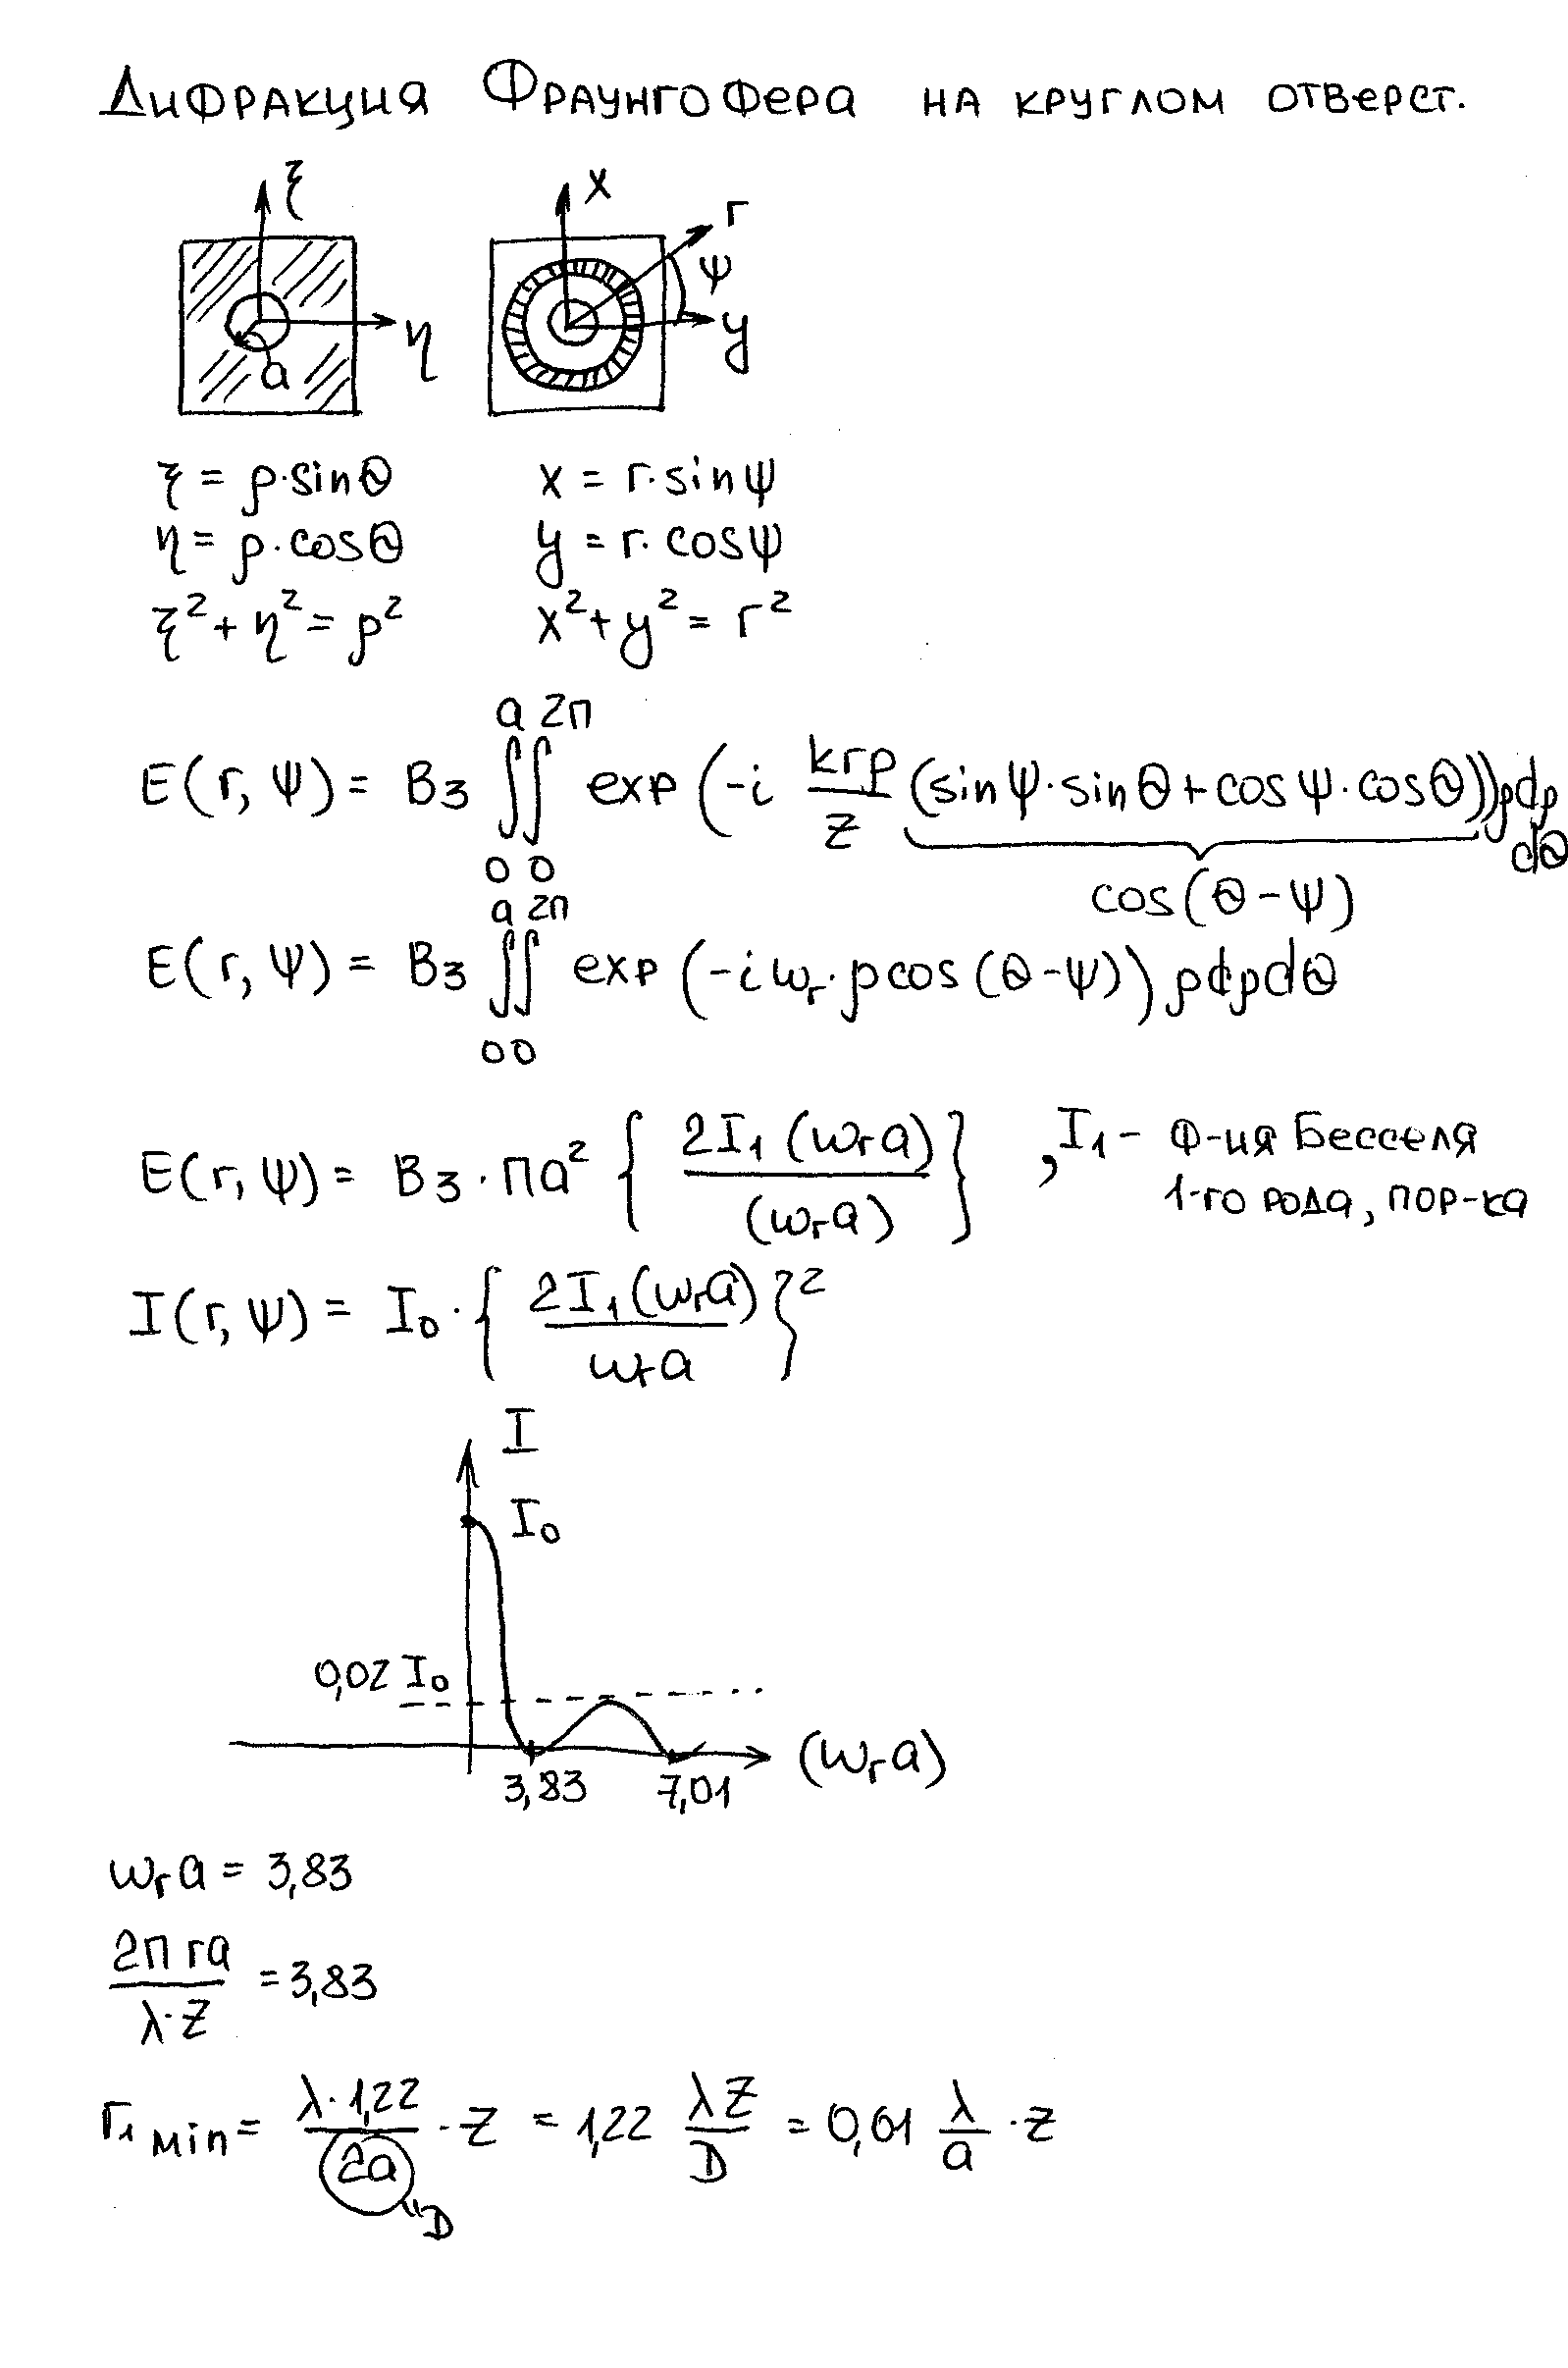 Дифракция Фраунгофера на круглом отверст.
ξ x r
ψ
η y
a
ξ = ρ·sinθ x = r·sinψ
η = ρ·cosθ y = r·cosψ
ξ² + η² = ρ² x² + y² = r²
E(r, ψ) = B₃ ∫₀^a ∫₀^2π exp(-i krρ/z (sinψ·sinθ + cosψ·cosθ)) ρdρ dθ
cos(θ-ψ)
E(r, ψ) = B₃ ∫₀^a ∫₀^2π exp(-i ωᵣ·ρcos(θ-ψ)) ρdρdθ
E(r, ψ) = B₃·πa² { 2I₁(ωᵣa) / (ωᵣa) } , I₁ - ф-ия Бесселя
1-го рода, пор-ка
I(r, ψ) = I₀·{ 2I₁(ωᵣa) / ωᵣa }²
I
I₀
0,02 I₀
(ωᵣa)
3,83 7,01
ωᵣa = 3,83
2π ra / λ·z = 3,83
r₁ min = λ·1,22 / 2a · z = 1,22 λz / D = 0,61 λ/a · z
"D